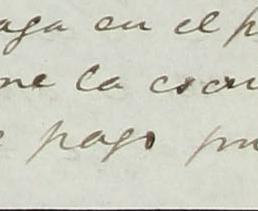 aga en el p
me la escri
e pago pu